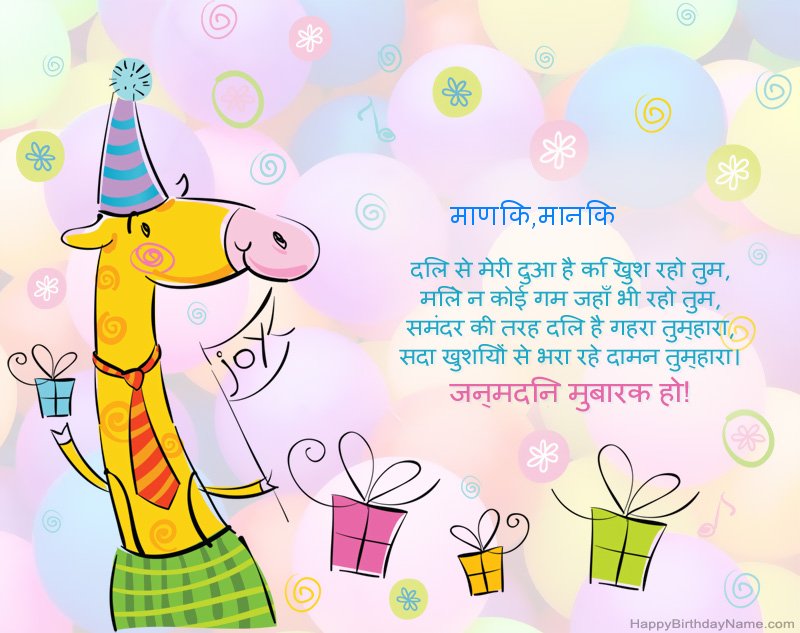 माणकि,मानकि
दलि से मेरी दुआ है कि खुश रहो तुम,
मलिे न कोई गम जहाँ भी रहो तुम,
समंदर की तरह दलि है गहरा तुम्हारा,
सदा खुशयिों से भरा रहे दामन तुम्हारा।
जन्मदनि मुबारक हो!
joy
HappyBirthdayName.com